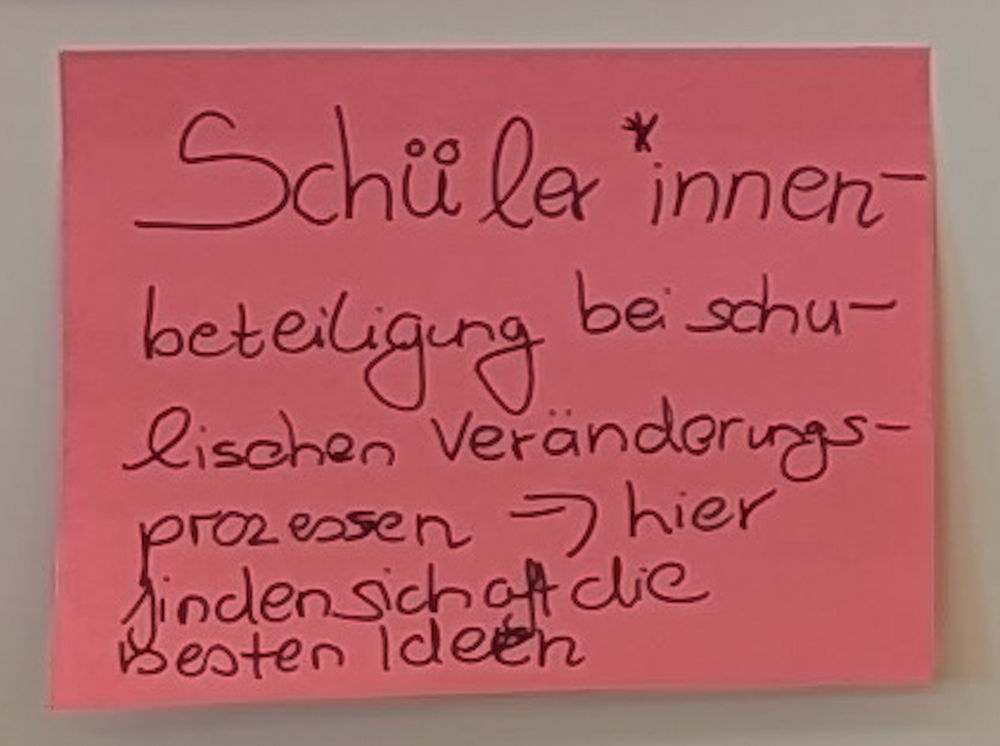 Schüler*innen-
beteiligung bei schu-
lischen Veränderungs-
prozessen => hier
finden sich oft die
besten Ideen